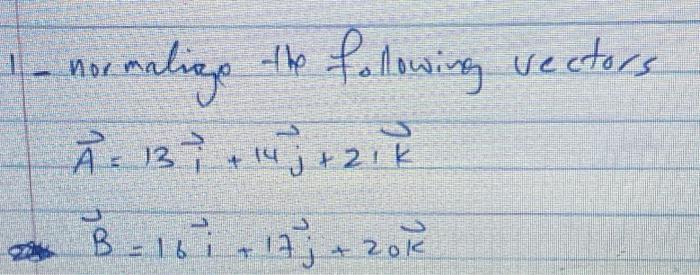 1 - normalize the following vectors
A⃗ = 13 i⃗ + 14 j⃗ + 21 k⃗
B⃗ = 16 i⃗ + 17 j⃗ + 20 k⃗